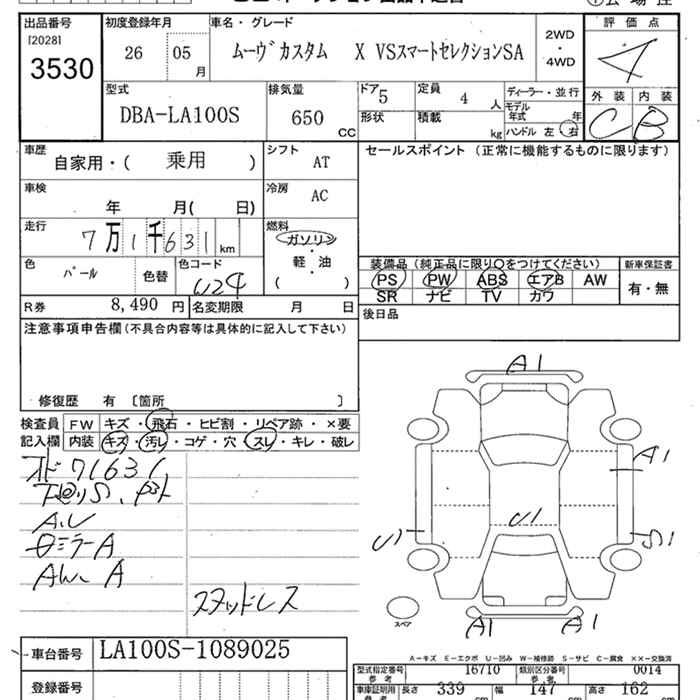 出品番号 初度登録年月 車名・グレード 評価点
[2028] 3530
26 05 月
ムーヴカスタム X VSスマートセレクションSA
2WD・4WD
4
型式 排気量 ドア 定員 ディーラー・並行 外装 内装
DBA-LA100S 650 CC 5 4 人 モデル年式 年
C B
形状 積載 kg ハンドル 左 右
車歴 シフト セールスポイント (正常に機能するものに限ります)
自家用・( 乗用 ) AT
車検 冷房
年 月( 日) AC
走行 燃料
7万1千631 km ガソリン・軽・油
( )
色 色替 色コード
パール W24
装備品 (純正品に限り○をつけてください) 新車保証書
PS PW ABS エアB AW 有・無
SR ナビ TV カワ
R券 8,490 円 名変期限 月 日
後日品
注意事項申告欄(不具合内容等は具体的に記入して下さい)
修復歴 有 [箇所 ]
検査員 FW キズ・飛石・ヒビ割・リペア跡・×要
記入欄 内装 キズ・汚レ・コゲ・穴・スレ・キレ・破レ
71631
下廻りS、
ロミラーA
AW、A
スタッドレス
A1
A1
U1
U1
S1
A1
A1
スペア
車台番号 LA100S-1089025
登録番号
A-キズ E-エクボ U-凹み W-補修跡 S-サビ C-腐食 XX-交換済
型式指定番号 参考 16710 類別区分番号 参考 0014
車庫証明用 参考 長さ 339 幅 147 高さ 162 cm